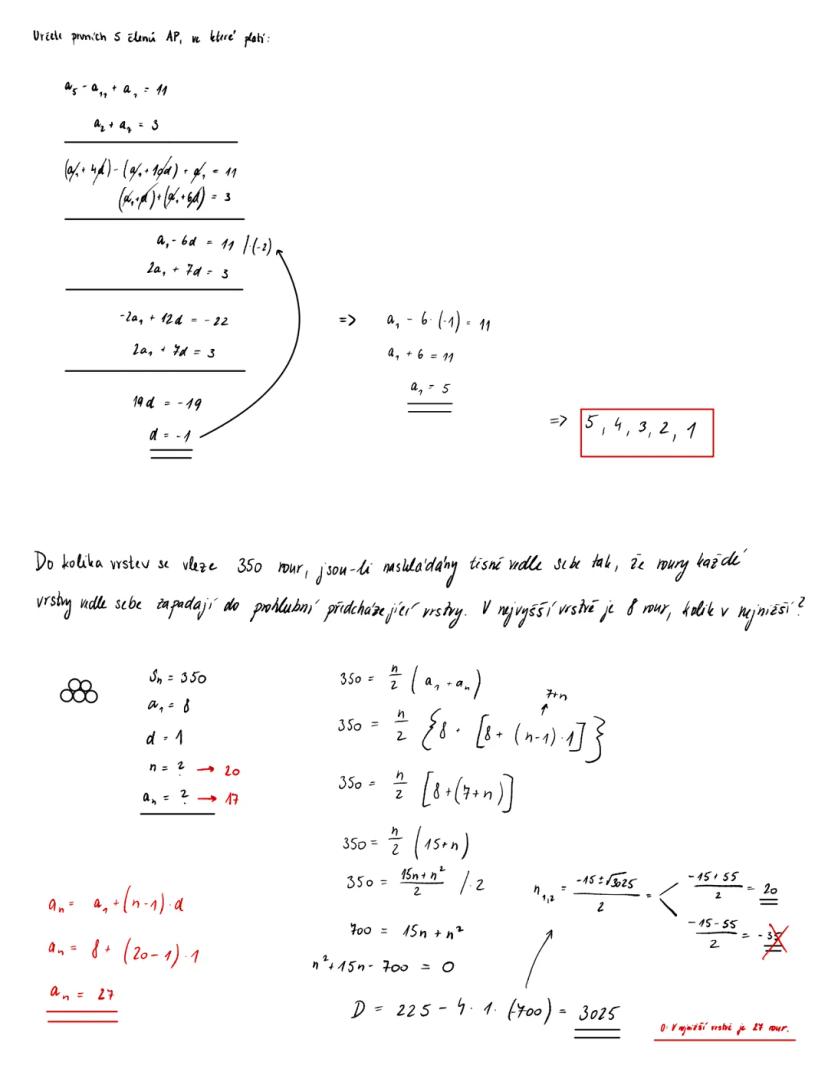 Určete prvních 5 členů AP, ve které platí:
a₅ - a₁₁ + a₁ = 11
a₂ + a₇ = 3
(a₁ + 4d) - (a₁ + 10d) + a₁ = 11
(a₁ + d) + (a₁ + 6d) = 3
a₁ - 6d = 11 /·(-2)
2a₁ + 7d = 3
-2a₁ + 12d = -22
2a₁ + 7d = 3
19d = -19
d = -1
=> a₁ - 6·(-1) = 11
a₁ + 6 = 11
a₁ = 5
=> 5, 4, 3, 2, 1
Do kolika vrstev se vleze 350 rour, jsou-li naskládány tisně vedle sebe tak, že roury každé
vrstvy vedle sebe zapadají do prohlubní předcházející vrstvy. V nejvyšší vrstvě je 8 rour, kolik v nejnižší?
Sₙ = 350
a₁ = 8
d = 1
n = ? → 20
aₙ = ? → 17
aₙ = a₁ + (n-1)·d
aₙ = 8 + (20-1)·1
aₙ = 27
350 = n/2 (a₁ + aₙ)
7+n
350 = n/2 {8 + [8 + (n-1)·1]}
350 = n/2 [8+(7+n)]
350 = n/2 (15+n)
350 = 15n+n²/2 /·2
700 = 15n + n²
n²+15n-700 = 0
D = 225 - 4·1·(-700) = 3025
n₁,₂ = -15±√3025/2 =
-15+55/2 = 20
-15-55/2 = -35
O: V nejnižší vrstvě je 27 rour.